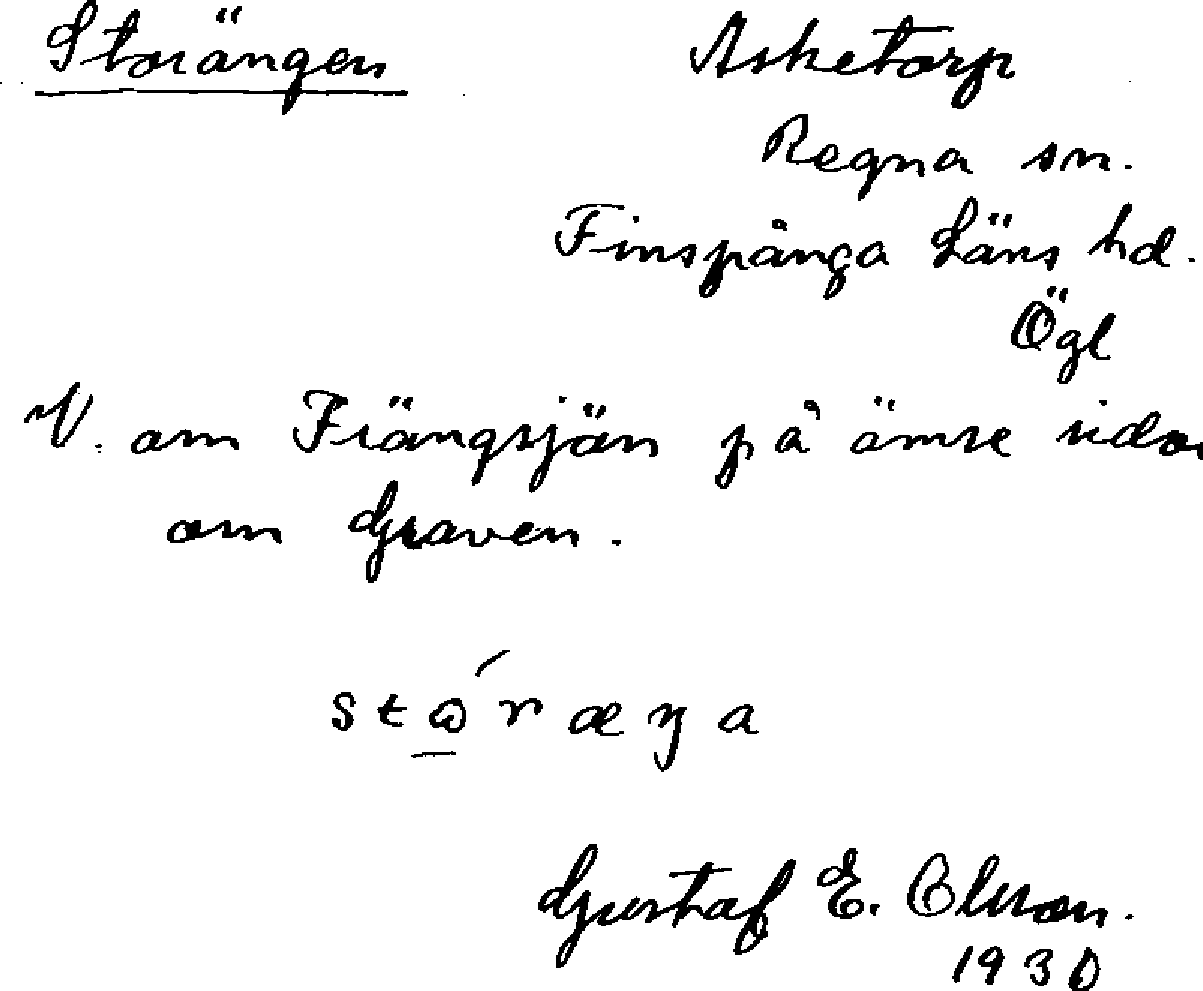 Storängen
Asketorp
Regna sn.
Finspånga Läns hd.
Ögl
V. om Frängsjön på ömse sidor
om Graven.
stώ̲ræŋa
Gustaf E. Olsson.
1930